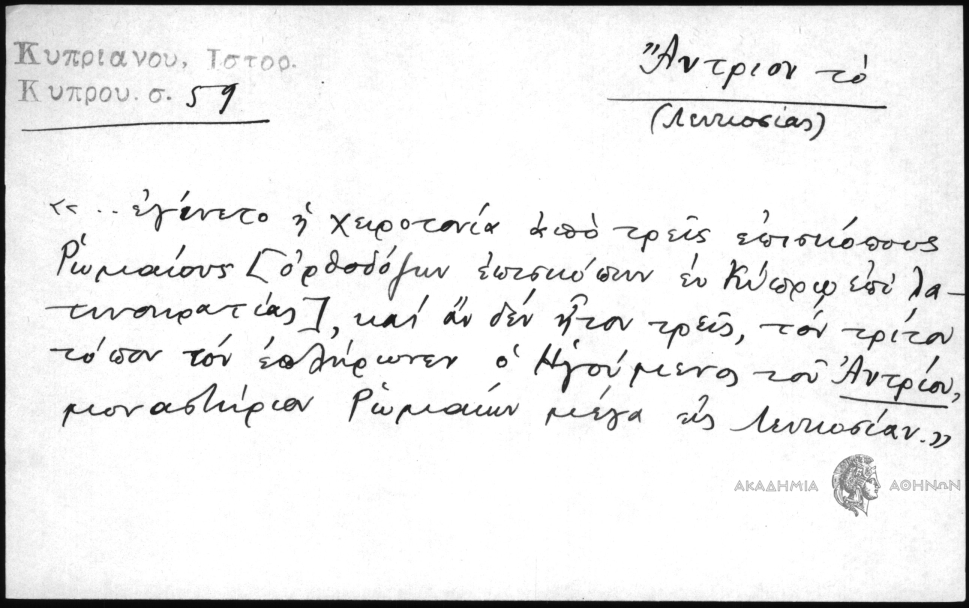 Κυπριανου, Ιστορ.
Κυπρου. σ. 59
Ἄντριον τὸ
(Λευκοσίας)
«.. ἐγένετο ἡ χειροτονία ἀπὸ τρεῖς ἐπισκόπους
Ῥωμαίους [ὀρθοδόξων ἐπισκόπων ἐν Κύπρῳ ἐπὶ λα-
τινοκρατίας], καὶ ἂν δέν ἦτον τρεῖς, τόν τρίτον
τόπον τόν ἐπλήρωνεν ὁ Ἡγούμενος τοῦ Ἀντρίου,
μοναστήριον Ῥωμαίων μέγα εἰς Λευκοσίαν.»
ΑΚΑΔΗΜΙΑ ΑΘΗΝΩΝ